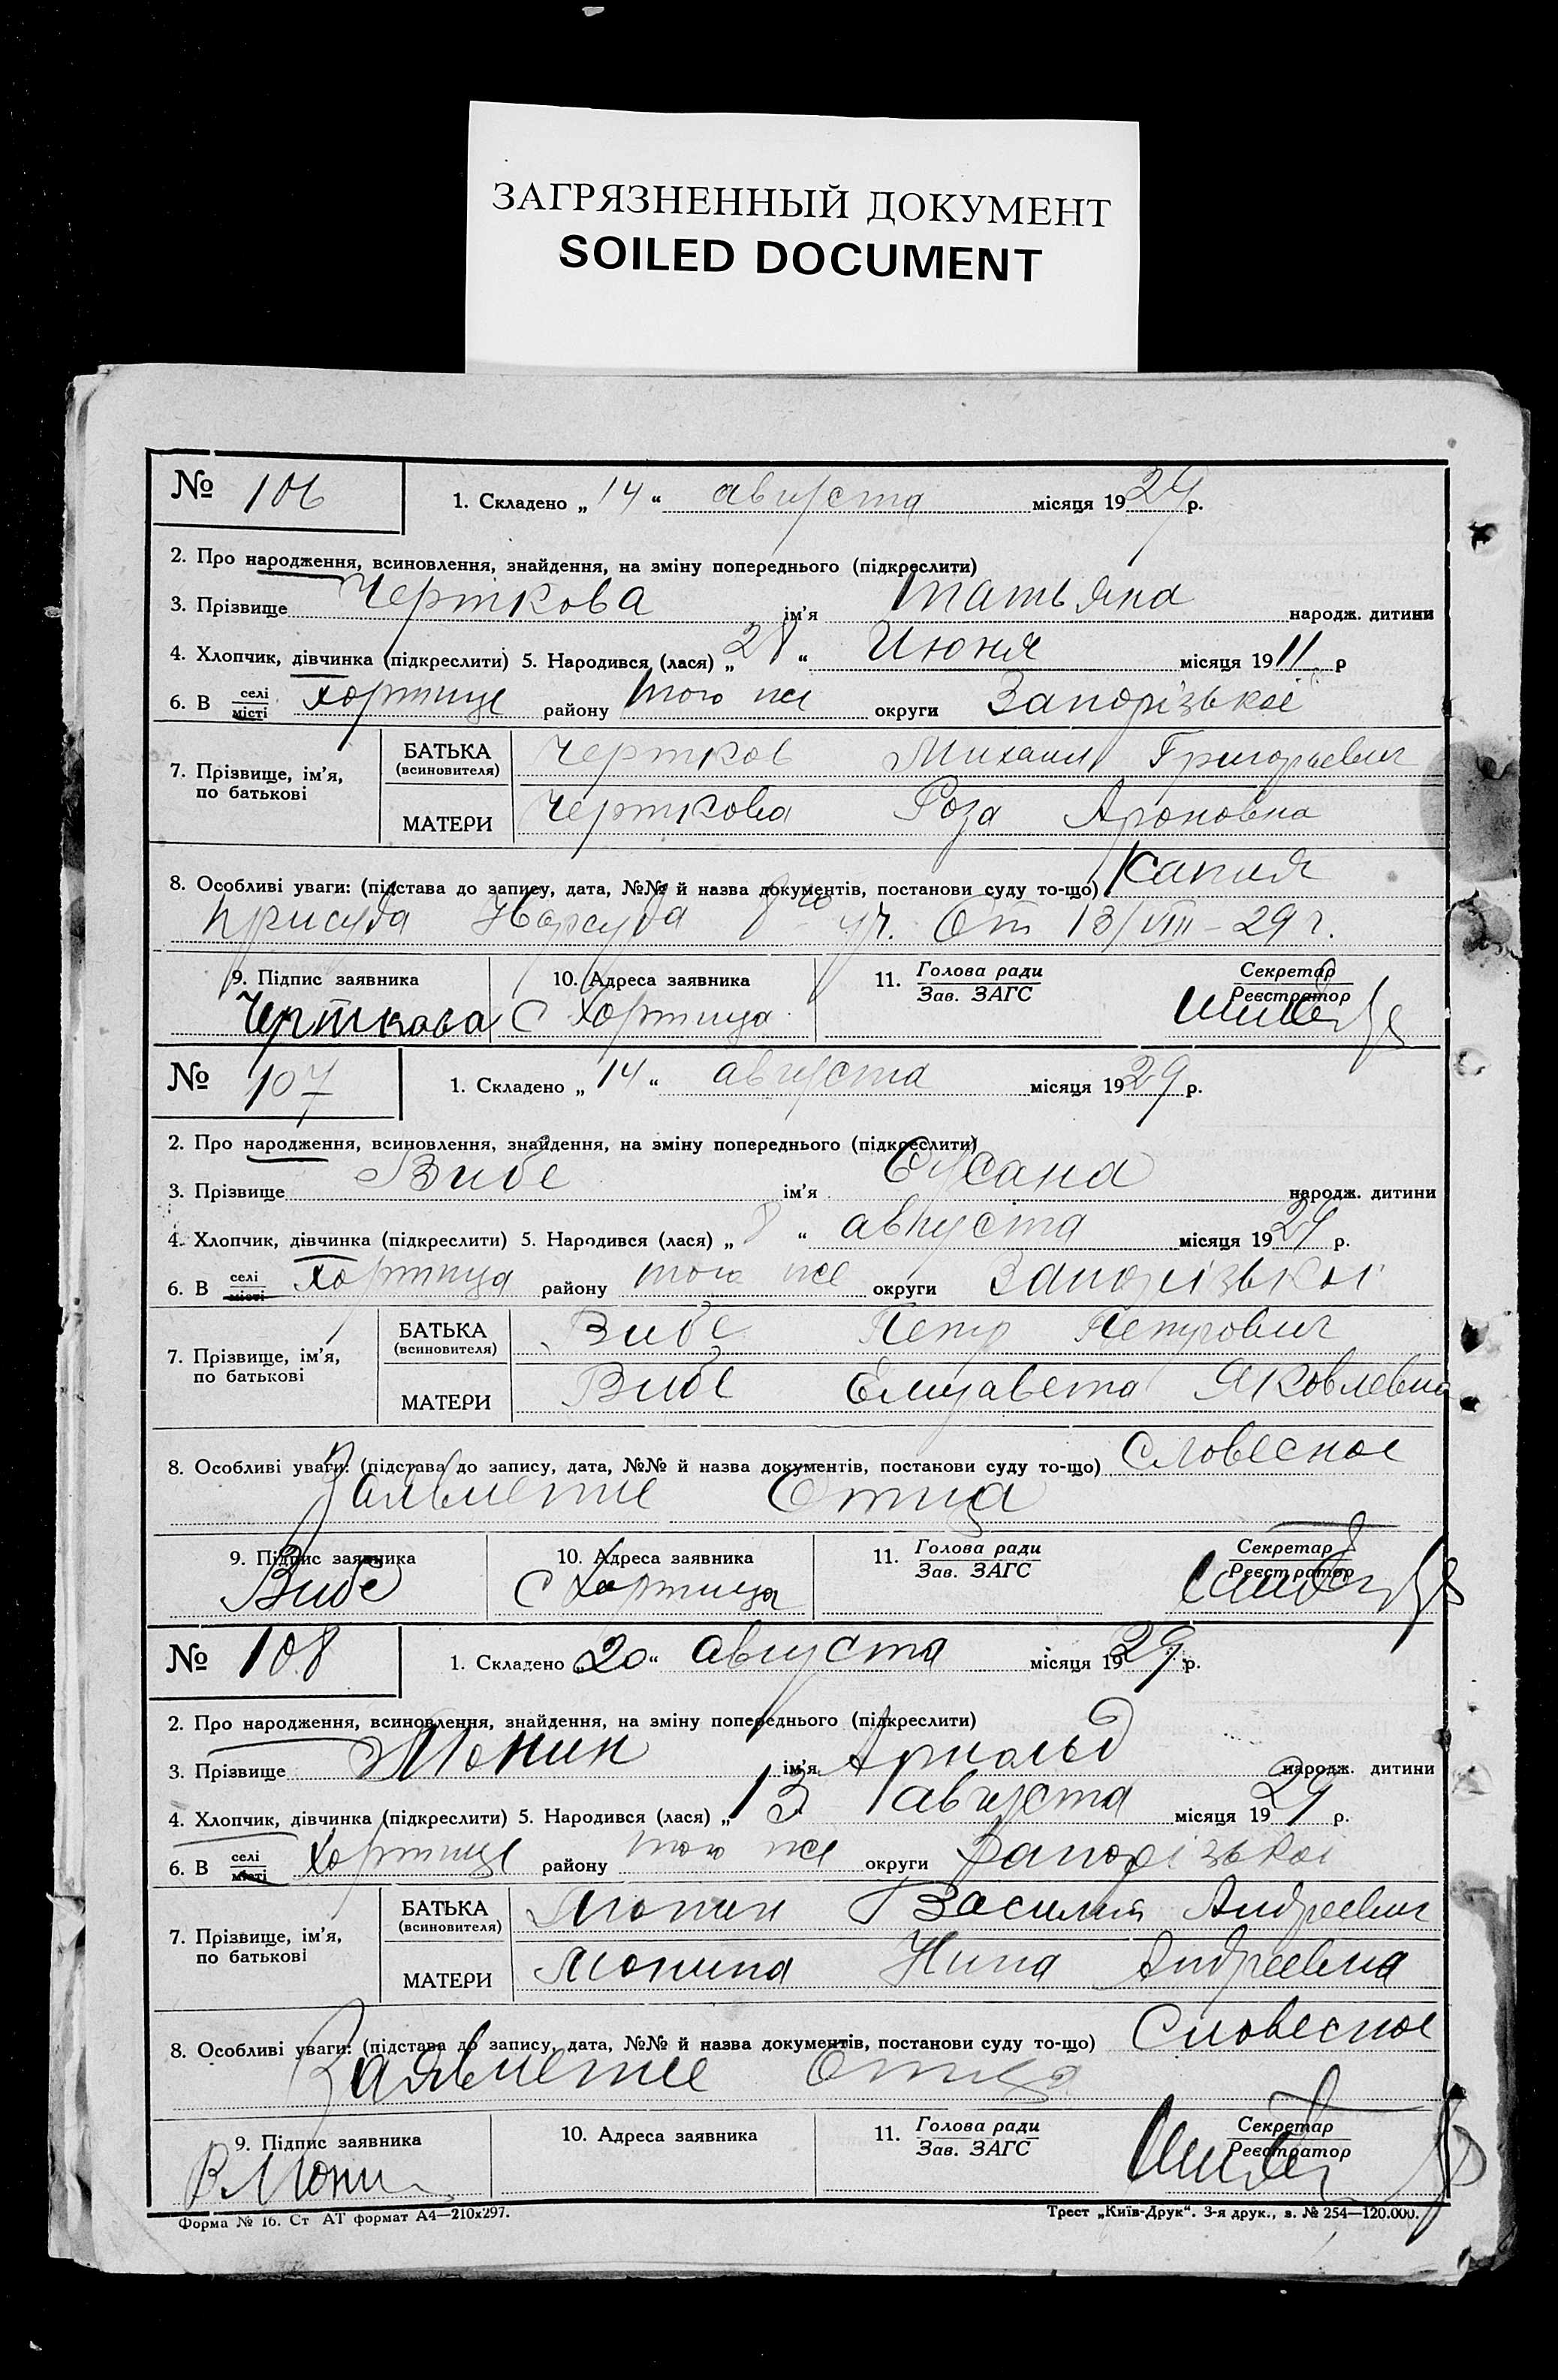 ЗАГРЯЗНЕННЫЙ ДОКУМЕНТ
SOILED DOCUMENT
№ 106
1. Складено „14“ августа місяця 1929 р.
2. Про народження, всиновлення, знайдення, на зміну попереднього (підкреслити)
3. Прізвище Черткова ім’я Татьяна народж. дитини
4. Хлопчик, дівчинка (підкреслити) 5. Народився (лася) „28“ Июня місяця 1911 р
6. В селі місті Хортице району того же округи Запорізької
7. Прізвище, ім’я, по батькові
БАТЬКА (всиновителя) Чертков Михаил Григорьевич
МАТЕРИ Черткова Роза Ароновна
8. Особливі уваги: (підстава до запису, дата, №№ й назва документів, постанови суду то-що) Капия
присуда Нарсуда 8го уч. От 13/VIII – 29 г.
9. Підпис заявника 10. Адреса заявника 11. Голова ради Зав. ЗАГС Секретар Реєстратор
Черткова С Хортица
№ 107
1. Складено „14“ августа місяця 1929 р.
2. Про народження, всиновлення, знайдення, на зміну попереднього (підкреслити)
3. Прізвище Вибе ім’я Сусана народж. дитини
4. Хлопчик, дівчинка (підкреслити) 5. Народився (лася) „8“ августа місяця 1929 р.
6. В селі місті Хортица району того же округи Запорізької
7. Прізвище, ім’я, по батькові
БАТЬКА (всиновителя) Вибе Петр Петрович
МАТЕРИ Вибе Елизавета Яковлевна
8. Особливі уваги: (підстава до запису, дата, №№ й назва документів, постанови суду то-що) Словесное
Заявление Отца
9. Підпис заявника 10. Адреса заявника 11. Голова ради Зав. ЗАГС Секретар Реєстратор
Вибе С Хортица
№ 108
1. Складено „20“ августа місяця 1929 р.
2. Про народження, всиновлення, знайдення, на зміну попереднього (підкреслити)
3. Прізвище Монин ім’я Арнольд народж. дитини
4. Хлопчик, дівчинка (підкреслити) 5. Народився (лася) „13 августа місяця 1929 р.
6. В селі місті Хортице району того же округи Запорізької
7. Прізвище, ім’я, по батькові
БАТЬКА (всиновителя) Монин Василий Андреевич
МАТЕРИ Монина Нина Андреевна
8. Особливі уваги: (підстава до запису, дата, №№ й назва документів, постанови суду то-що) Словесное
Заявление Отца
9. Підпис заявника 10. Адреса заявника 11. Голова ради Зав. ЗАГС Секретар Реєстратор
В. Мони
Форма № 16. Ст АТ формат А4—210х297. Трест „Київ-Друк“. 3-я друк., з. № 254—120.000.